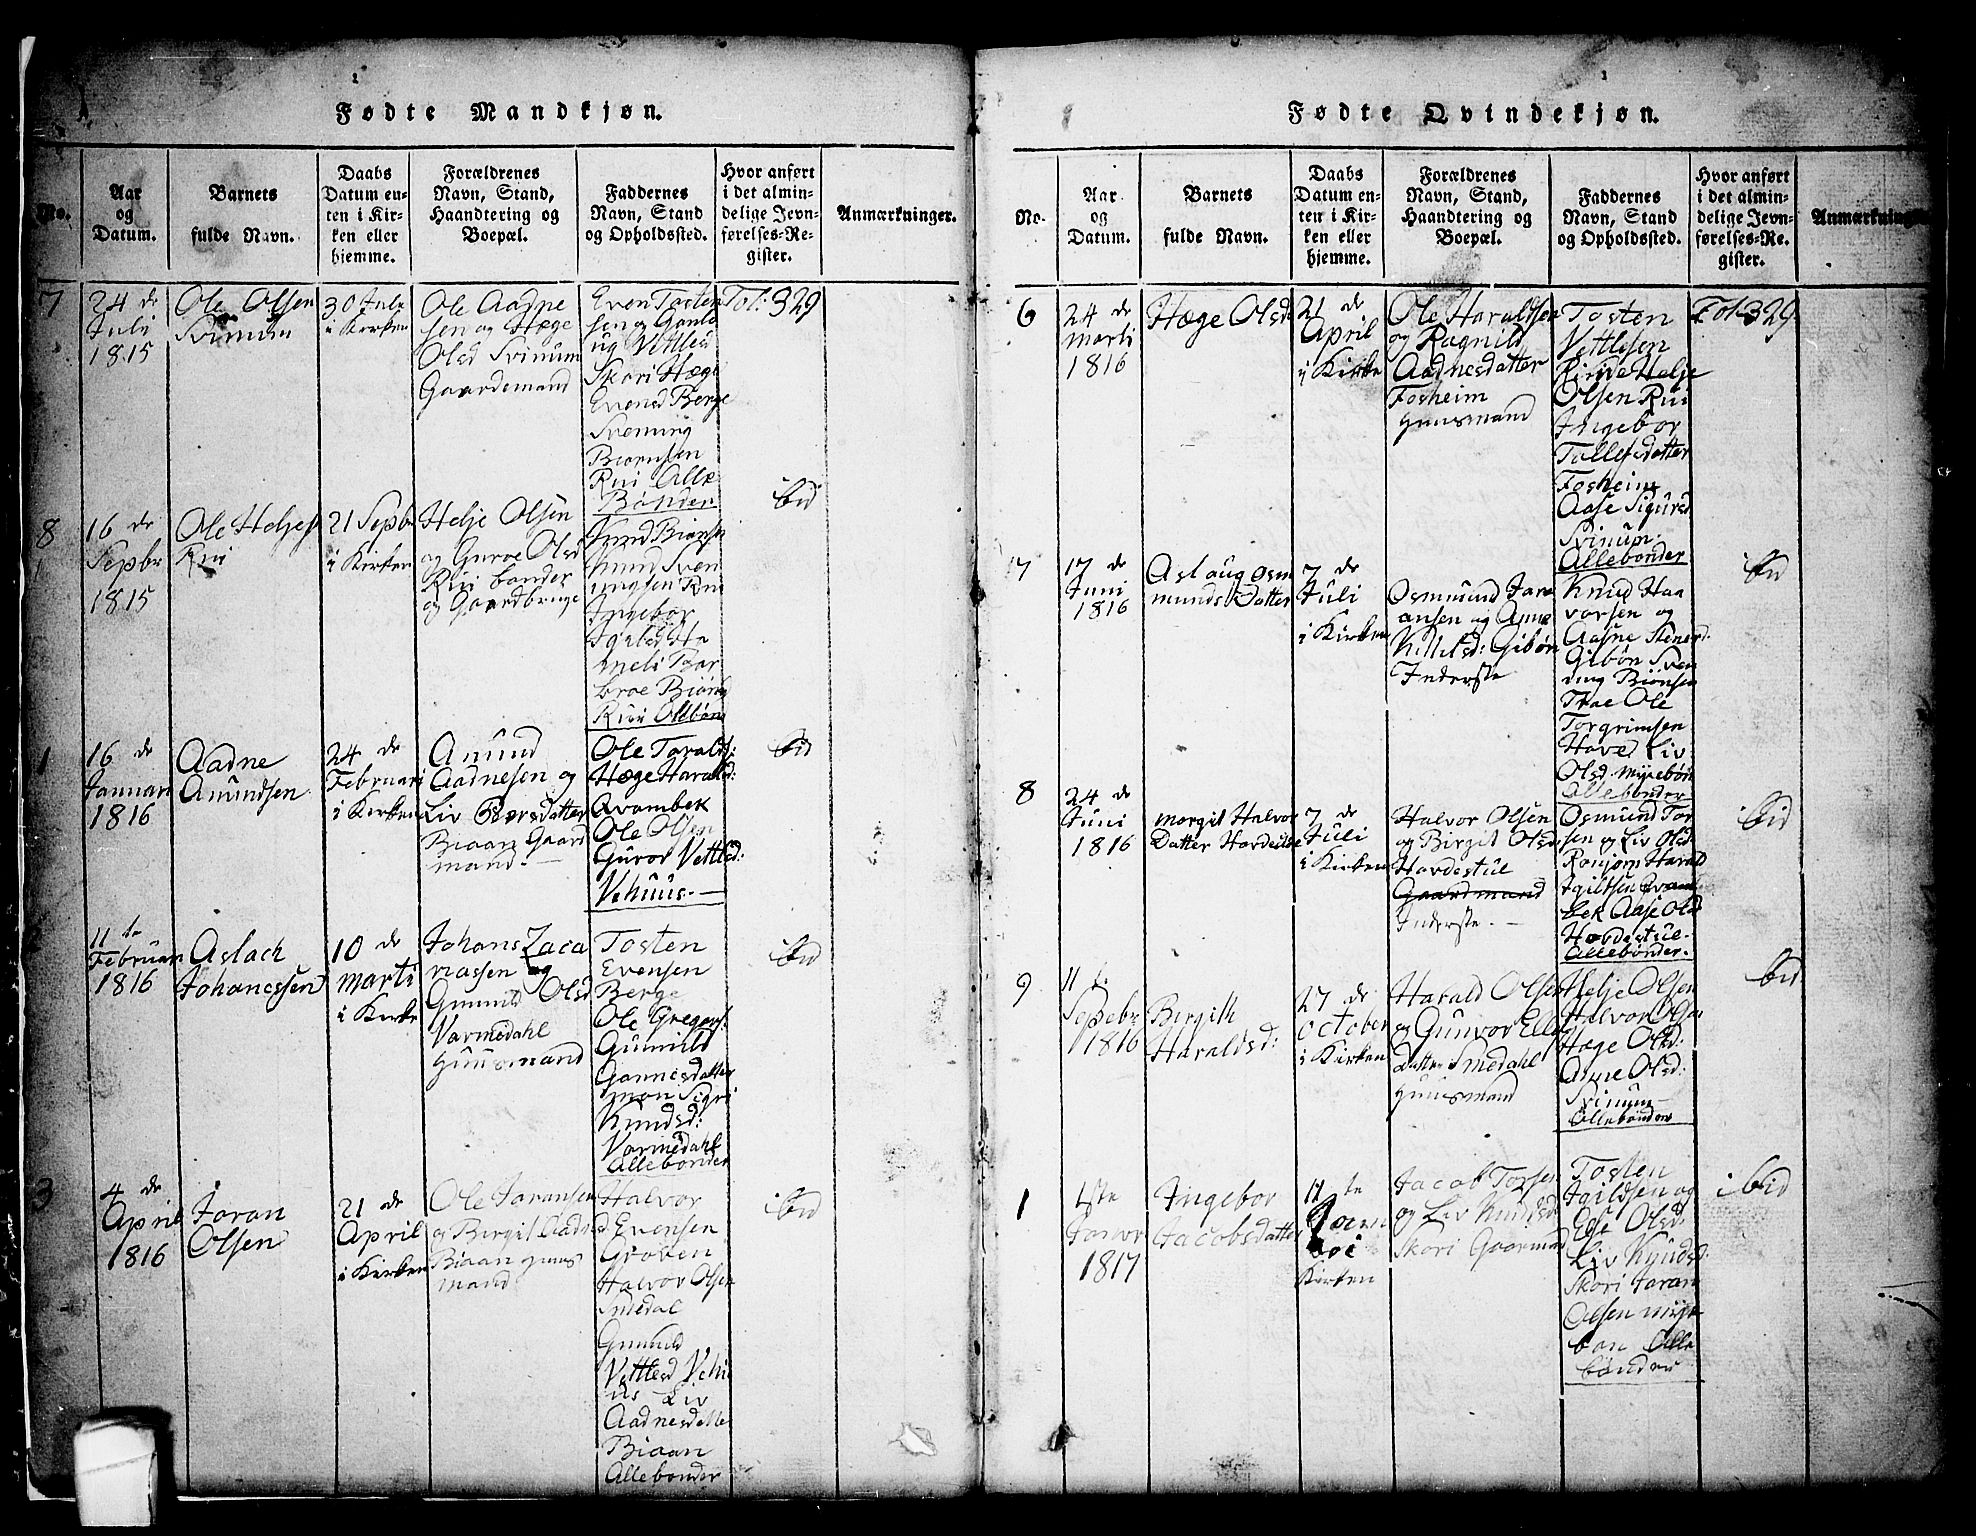 Fødte Mandkjøn.
No.
Aar
og
Datum.
Barnets
fulde Navn.
Daabs
Datum en-
ten i Kir-
ken eller
hjemme.
Forældrenes
Navn, Stand,
Haandtering og
Boepæl.
Faddernes
Navn, Stand
og Opholdssted.
Hvor anført
i det almin-
delige Jevn-
førelses-Re-
gister.
Anmærkninger.
7
24 de
Juli
1815
Ole Olsen
Svinum
30 Juli
i Kirken
Ole Aadne
sen og Hæge
Olsd Svinum
Gaardemand
Even Tosten
sen og
Vettlesd
Skori Hæge
Evensd Berge
Svening
Biørnsen
Rui Alle
Bønder
Fol: 329
8
16 de
Sepbr
1815
Ole Heljes
Rui
21 Sepbr
i Kirken
Helje Olsen
og Guroe Olsd
Rui bønder
og Gaardbruge
Knud Biørns
Knud Sven
ungsen Rui
Ingebor
Tarbroe Biørns
Rui Allebøn
ibid
1
16 de
Januari
1816
Aadne
Amundsen
24 de
Februari
i Kirken
Amund
Aadnesen og
Liv Torsdatter
Biaan Gaard
mand.
Ole Tarald:
Hæge Harald:
Qvambek
Ole Olsen
Guror Vettled:
Vehuus.
ibid
2
11 te
Februari
1816
Aslach
Johanessen
10 de
marti
i Kirke
Johans Zaca
riassen og
Gunuld Olsd
Varmedahl
Huusmand
Tosten
Evensen
Berge
Ole Gregers:
Gunuld
Gonnesdatter
moen Sigri
Knudsd:
Varmedahl
Allebønder
ibid
3
4 de
April
1816
Joran
Olsen
21 de
April
i Kirken
Ole Joransen
og Bergit Aadnesd
Biaan Huus
mand
Halvor
Evensen
Groven
Halvor Olsen
Smedal
Gunuld
Vettlesd Vehu
us Liv
Aadnesdatte
Biaan
Allebønder
ibid
Fødte Qvindekjøn.
No.
Aar
og
Datum.
Barnets
fulde Navn.
Daabs
Datum en-
ten i Kir-
ken eller
hjemme.
Forældrenes
Navn, Stand,
Haandtering og
Boepæl.
Faddernes
Navn, Stand
og Opholdssted.
Hvor anført
i det almin-
delige Jevn-
førelses-Re-
gister.
Anmærkninger
6
24 de
marti
1816
Hæge Olsd
21 de
April
i Kirke
Ole Haraldsen
og Ragnild
Aadnesdatter
Fosheim
Huusmand
Tosten
Vettlesen
Helje
Olsen Rui
Ingebor
Tollefsdatter
Fosheim
Aase Sigursd
Svinum.
Allebønder
Fol: 329
7
17 de
Juni
1816
Aslaug Osm
munds Datter
7 de
Juli
i Kirken
Osmund Jora
ansen og Anne
Killilsd: Gibøn
Inderste
Knud Haa
vorsen og
Aasne Stenersd.
Gibøn Sven
ning Biønsen
Trae Ole
Torgrimsen
Hove Liv
Olsd. myrebøn
Allebønder
ibid
8
24 de
Juni
1816
Margit Halvor
Datter Hovdestul
7 de
Juli
i Kirken
Halvor Olsen
og Birgit Olsd:
Hovdestul
Gaardmand
Inderste.
Osmund Tor
sen og Liv Olsd.
Ronjom Harald
Igiltsen Qvam
bek Aase Olsd
Hovdestul.
Allebønder.
ibid
9
11 te
Sepebr
1816
Bergith
Haraldsd:
27 de
October
i Kirken
Harald Olsen
og Gunvor Elle
Datter Smedahl
Huusmand
Helje Olsen
Halvor Olsen
Hæge Olsd:
Anne Olsd:
Svinum
Allebønder
ibid
1
1ste
Janvr
1817
Ingebor
Jacobsdatter
11 te
Kirken
Jacob Torsen
og Liv Knudsd
Skori Gaarmand
Tosten
Igildsen og
Ege Olsd:
Liv Knudsd:
Skori Joran
Olsen myre
bøn Alle
bønder
ibid